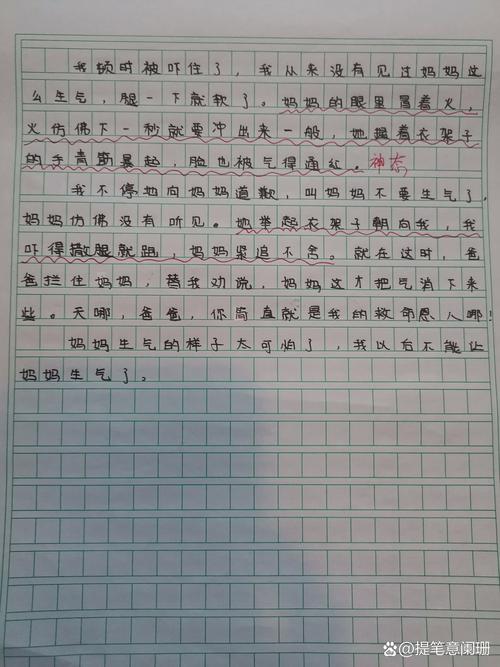 我顿时被吓住了，我从来没有见过妈妈这
么生气，腿一下就软了。妈妈的眼里冒着火，
火仿佛下一秒就要冲出来一般，她握着衣架子
的手青筋暴起，脸也被气得通红。神态
我不停地向妈妈道歉，叫妈妈不要生气了，
妈妈仿佛没有听见。她举起衣架子朝向我，我
吓得撒腿就跑，妈妈紧追不舍。就在这时，爸
爸拦住妈妈，替我劝说，妈妈这才把气消下来
些。天哪，爸爸，你简直就是我的救命恩人哪！
妈妈生气的样子太可怕了，我以后不能让
妈妈生气了。
@提笔意阑珊